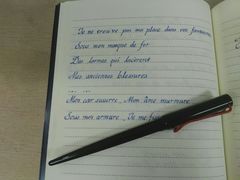 Je ne trouve pas ma place dans vos fantasmes
Sous mon masque de fer
Des larmes qui lacèrent
Mes anciennes blessures
Mon cœur s'ouvre... Mon âme murmure
Sous mon armure... Je me